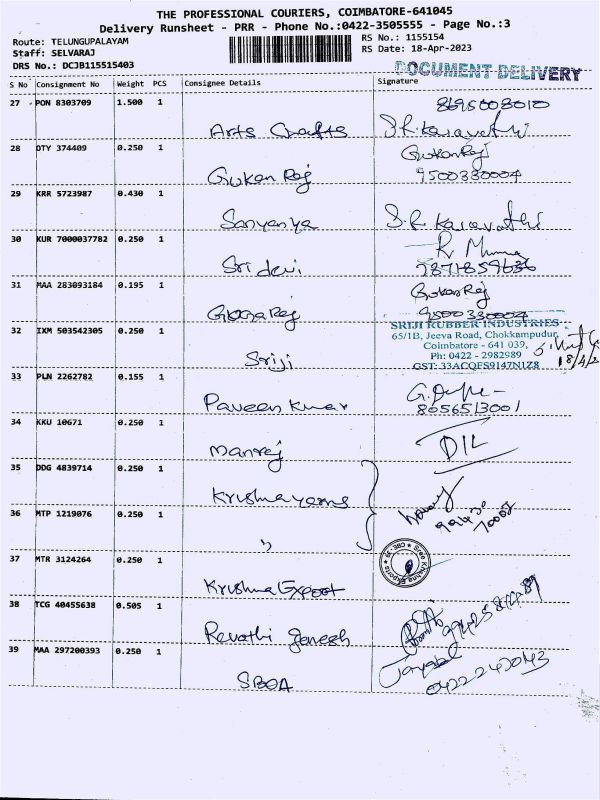 THE PROFESSIONAL COURIERS, COIMBATORE-641045
Delivery Runsheet - PRR - Phone No.:0422-3505555 - Page No.:3
Route: TELUNGUPALAYAM
RS No.: 1155154
Staff: SELVARAJ
RS Date: 18-Apr-2023
DRS No.: DCJB115515403
DOCUMENT DELIVERY
S No Consignment No Weight PCS Consignee Details Signature
27 PON 8303709 1.500 1
8695008010
Arts Crafts
28 DTY 374409 0.250 1
Gukan Raj
Gukan Raj 9500330004
29 KRR 5723987 0.430 1
30 KUR 7000037782 0.250 1
Sri devi
31 MAA 283093184 0.195 1
Gukan Raj
9500330004
32 IXM 503542305 0.250 1
SRIJI RUBBER INDUSTRIES
65/1B, Jeeva Road, Chokkampudur,
Coimbatore - 641 039,
Ph: 0422 - 2982989
GST: 33ACQFS9147N1Z8
Sriji
33 PLN 2262782 0.155 1
Paveen Kumar 8056513001
34 KKU 10671 0.250 1
Manraj
DIL
35 DDG 4839714 0.250 1
Krishna yarns
36 MTP 1219076 0.250 1
"
37 MTR 3124264 0.250 1
Krishna Export
38 TCG 40455638 0.505 1
Revathi Ganesh
39 MAA 297200393 0.250 1
SBOA